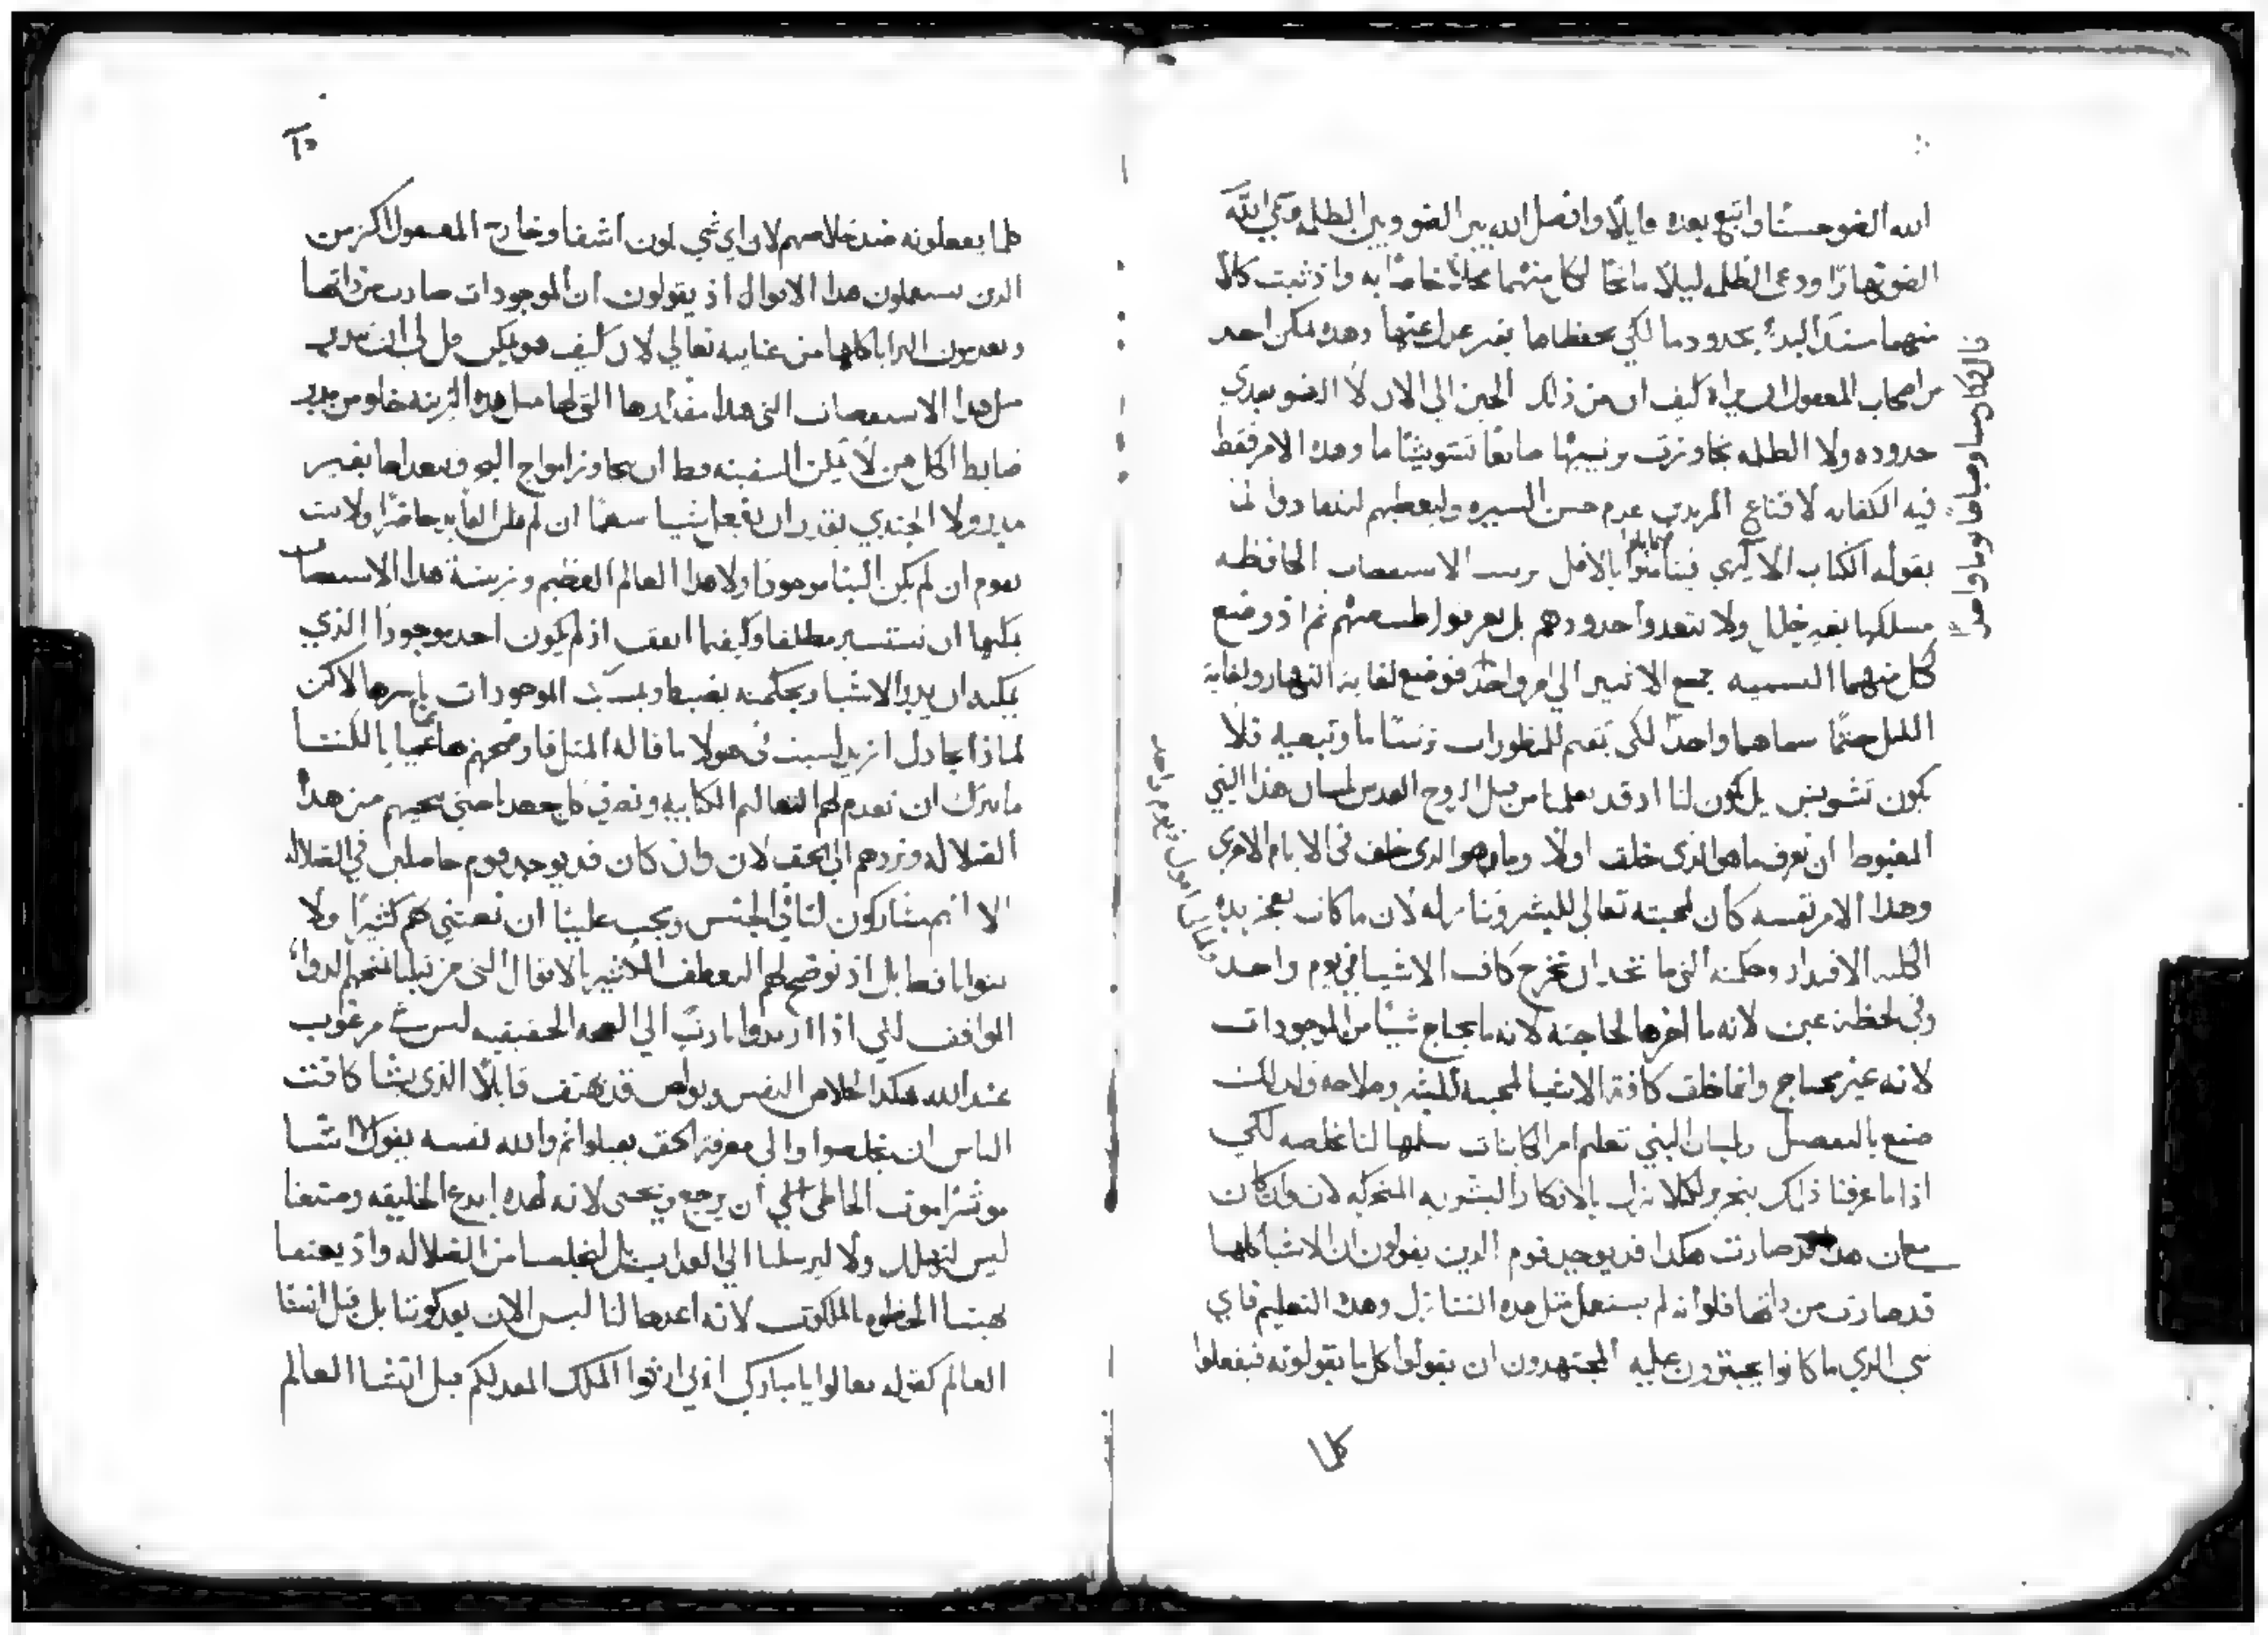 الله الضو حسنًا واتبع بعده قايلًا وافصل الله بين الضو وبين الظلمه ودعى الله
الضو نهارًا ودعى الظلمه ليلًا مانحًا لكل منهما محلًا خاصًا به واذ ثبت كلًا
منهما منذ البدء بحدود ما لكي يحفظاها بغير عدل عنها وهذه يمكن احد
من اصحاب المعقول ان يراه كيف ان من ذلك الحين الى الان لا الضو يعدي
حدوده ولا الظلمه تجاوزت رتبتها صانعًا تشويشًا ما وهذه الامر فقط
فيه الكفايه لاقناع المريدين عدم حسن السيره وليعطيهم لينقادوا لما
يقوله الكتاب الالهي بالاقل ترتيب الاستقصات الحافظه
مسلكها بغير خلل ولا يتعدوا حدودهم بل يعرفوا طبيعتهم ثم اذ وضع
كل منهما التسميه جمع الاثنين الى امر واحد فوضع لغاية النهار ولغاية
الليل حتمًا سماهما واحدًا لكي يقيم للمنظورات ترتيبًا ما وتبعيه فلا
يكون تشويش بل يكون لنا اذ قد تعلمنا من قبل الروح القدس بلسان هذا النبي
المغبوط ان نعرف ما هو الذي خلق اولًا وما هو الذي خلق في الايام الاخرى
وهذا الامر نفسه كان لمحبته تعالى للبشر وتنازله لان ما كانت تعجز يده
الكليه الاقتدار وحكمته التي ما تحد ان تخرج كافة الاشيا في يوم واحد
وفي لحظة عين لانه ما اخرها لحاجته لانه ما يحتاج شيًا من الموجودات
لانه غير محتاج وانما خلق كافة الاشيا لمحبته للبشر وصلاحه ولذلك
صنع بالتفصيل وبلسان النبي تعليم امر الكاينات سلمها لنا مخلصه لكي
اذا ما عرفنا ذلك بتحرير لكيلا نراب بالافكار البشريه المتحركه لان وان كان
مع ان هذه قد صارت هكذا قد يوجد قوم الذين يقولون ان الاشيا كلها
قد صارت من ذاتها فلو انه لم يستعمل مثل هذه التنازل وهذه التعليم فاي
شي الذي ما كانوا يجترون عليه المجتهدون ان يقولوا كل ما يقولونه فيفعلوا
كلما
قال فكان مسا وصباحًا يومًا واحدًا
يوم واحد
كلما يفعلونه ضد خلاصهم لان اي شي يكون اشقا وخارج المعقول اكثر من
الذين يستعملون هذا الاقوال اذ يقولون ان الموجودات صارت من ذاتها
ويعدمون البرايا كلها من عنايته تعالى لان كيف هو يمكن قل لي ان تدبير
مثل هذا الاستقصات التي هذا مقدارها التي لها مثل هذه الزينه خلو من مدبر
ضابط الكل من لا يمكن السفينه فقط ان تجاوز امواج البحر وتتعداها بغير
مدبر ولا الجندي يقدر ان يفعل شيًا سهمًا ان لم يكن القايد حاضرًا ولا بيت
يقوم ان لم يكن البنا موجودًا ولا هذا العالم العظيم وزينة هذا الاستقصات
يمكنها ان تستسير مطلقا وكيفما اتفق اذ لم يكون احد موجودًا الذي
يمكنه ان يدبر الاشيا وبحكمته يضبط ويمسك الموجودات باسرها لاكن
لماذا نجادل ازيد لسبت في هولا ما قاله المثل قارضحهم ها عميا بل لكننا
ما نترك ان نقدم لهم التعاليم الكتابيه ونصنع كل جهدنا حتى ننجيهم من هذا
الضلاله ونردهم الى الحق لان وان كان قد يوجد قوم حاصلين في الضلاله
الا انهم مشاركون لنا في الجنس ويجب علينا ان نعتني بهم كثيرًا ولا
نتوانا فقط بل اذ نوضح لهم التعطف الكثير بالافعال التي من قبلنا نمنحهم الدوا
الموافق لكي اذا ارتدوا ما رتب الى الصحه الحقيقيه ليس شي مرغوب
عند الله هكذا كخلاص النفس وبولص قد هتف قايلًا الذي يشا كافت
الناس ان يخلصوا والى معرفة الحق يقبلوا ثم والله نفسه يقول لا اشا
موثرًا موت الخاطي لكي ان يرجع ويحيى لانه لهذه ابدع الخليقه وصنعنا
ليس لنهلك ولا ليرسلنا الى العذاب بل ليخلصنا من الضلاله واذ يعتقنا
يهبنا الحظوه بالملكوت لانه اعدها لنا ليس الان بعد كوننا بل قبل انشا
العالم كقوله تعالوا يا مباركي ابي ارثوا الملك المعد لكم قبل انشا العالم